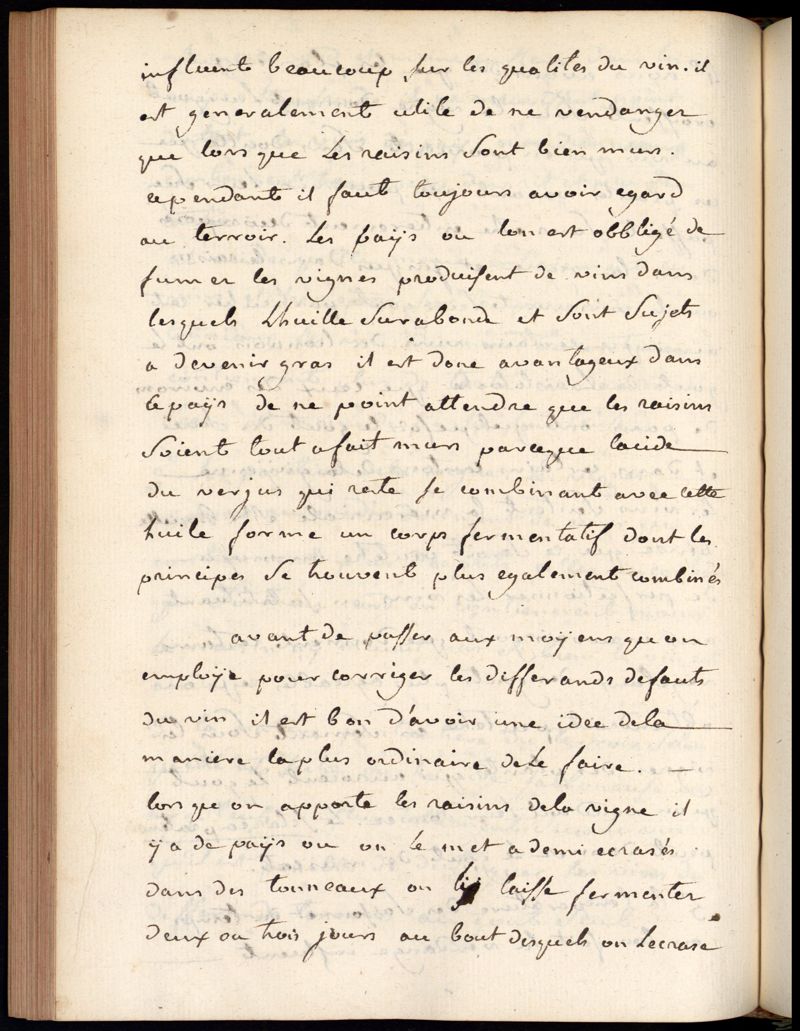 influent beaucoup sur les qualites du vin. il
est generalement utile de ne vendanger
que lors que Les raisins Sont bien murs.
cependant il faut toujours avoir egard
au terroir. Les païs ou lon est obbligé de
fumer les vignes produisent de vins dans
lesquels Lhuille Surabonde et Sont Sujets
a devenir gras il est donc avantageux dans
ce païs de ne point attendre que les raisins
Soient tout afait murs parceque lacide
du verjus qui reste se combinant avec cette
huile forme un corps fermentatif dont les
principes Se trouvent plus egalement combinés
avant de passer aux moyens quon
employe pour corriger les differands defauts
du vin il est bon d'avoir une idee dela
maniere laplus ordinaire deLe faire.
lors que on apporte les raisins dela vigne il
ÿ a de païs ou on Le met a demi ecrasés
dans des tonneaux on ly laisse fermenter
deux ou trois jours au bout desquels on Lecrase